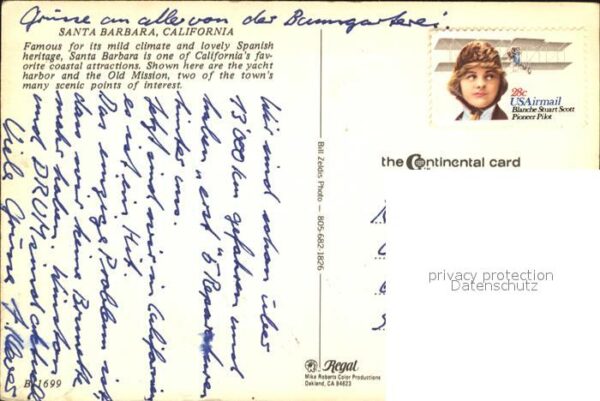 Grüsse an alle von der Baumgarterei.
SANTA BARBARA, CALIFORNIA
Famous for its mild climate and lovely Spanish
heritage, Santa Barbara is one of California's fav-
orite coastal attractions. Shown here are the yacht
harbor and the Old Mission, two of the town's
many scenic points of interest.
Wir sind schon über
13'000 km gefahren und
haben erst 5 Reparaturen
hinter uns.
Jetzt sind wir in California
es ist ein Hit.
Das einzige Problem ist,
dass wir keine Brunette
mehr haben. Winston
und DRUM sind aktuell
Viele Grüsse
B-1699
Bill Zeldis Photo — 805-682-1826
28c
USAirmail
Blanche Stuart Scott
Pioneer Pilot
the Continental card
privacy protection
Datenschutz
Regal
Mike Roberts Color Productions
Oakland, CA 84623